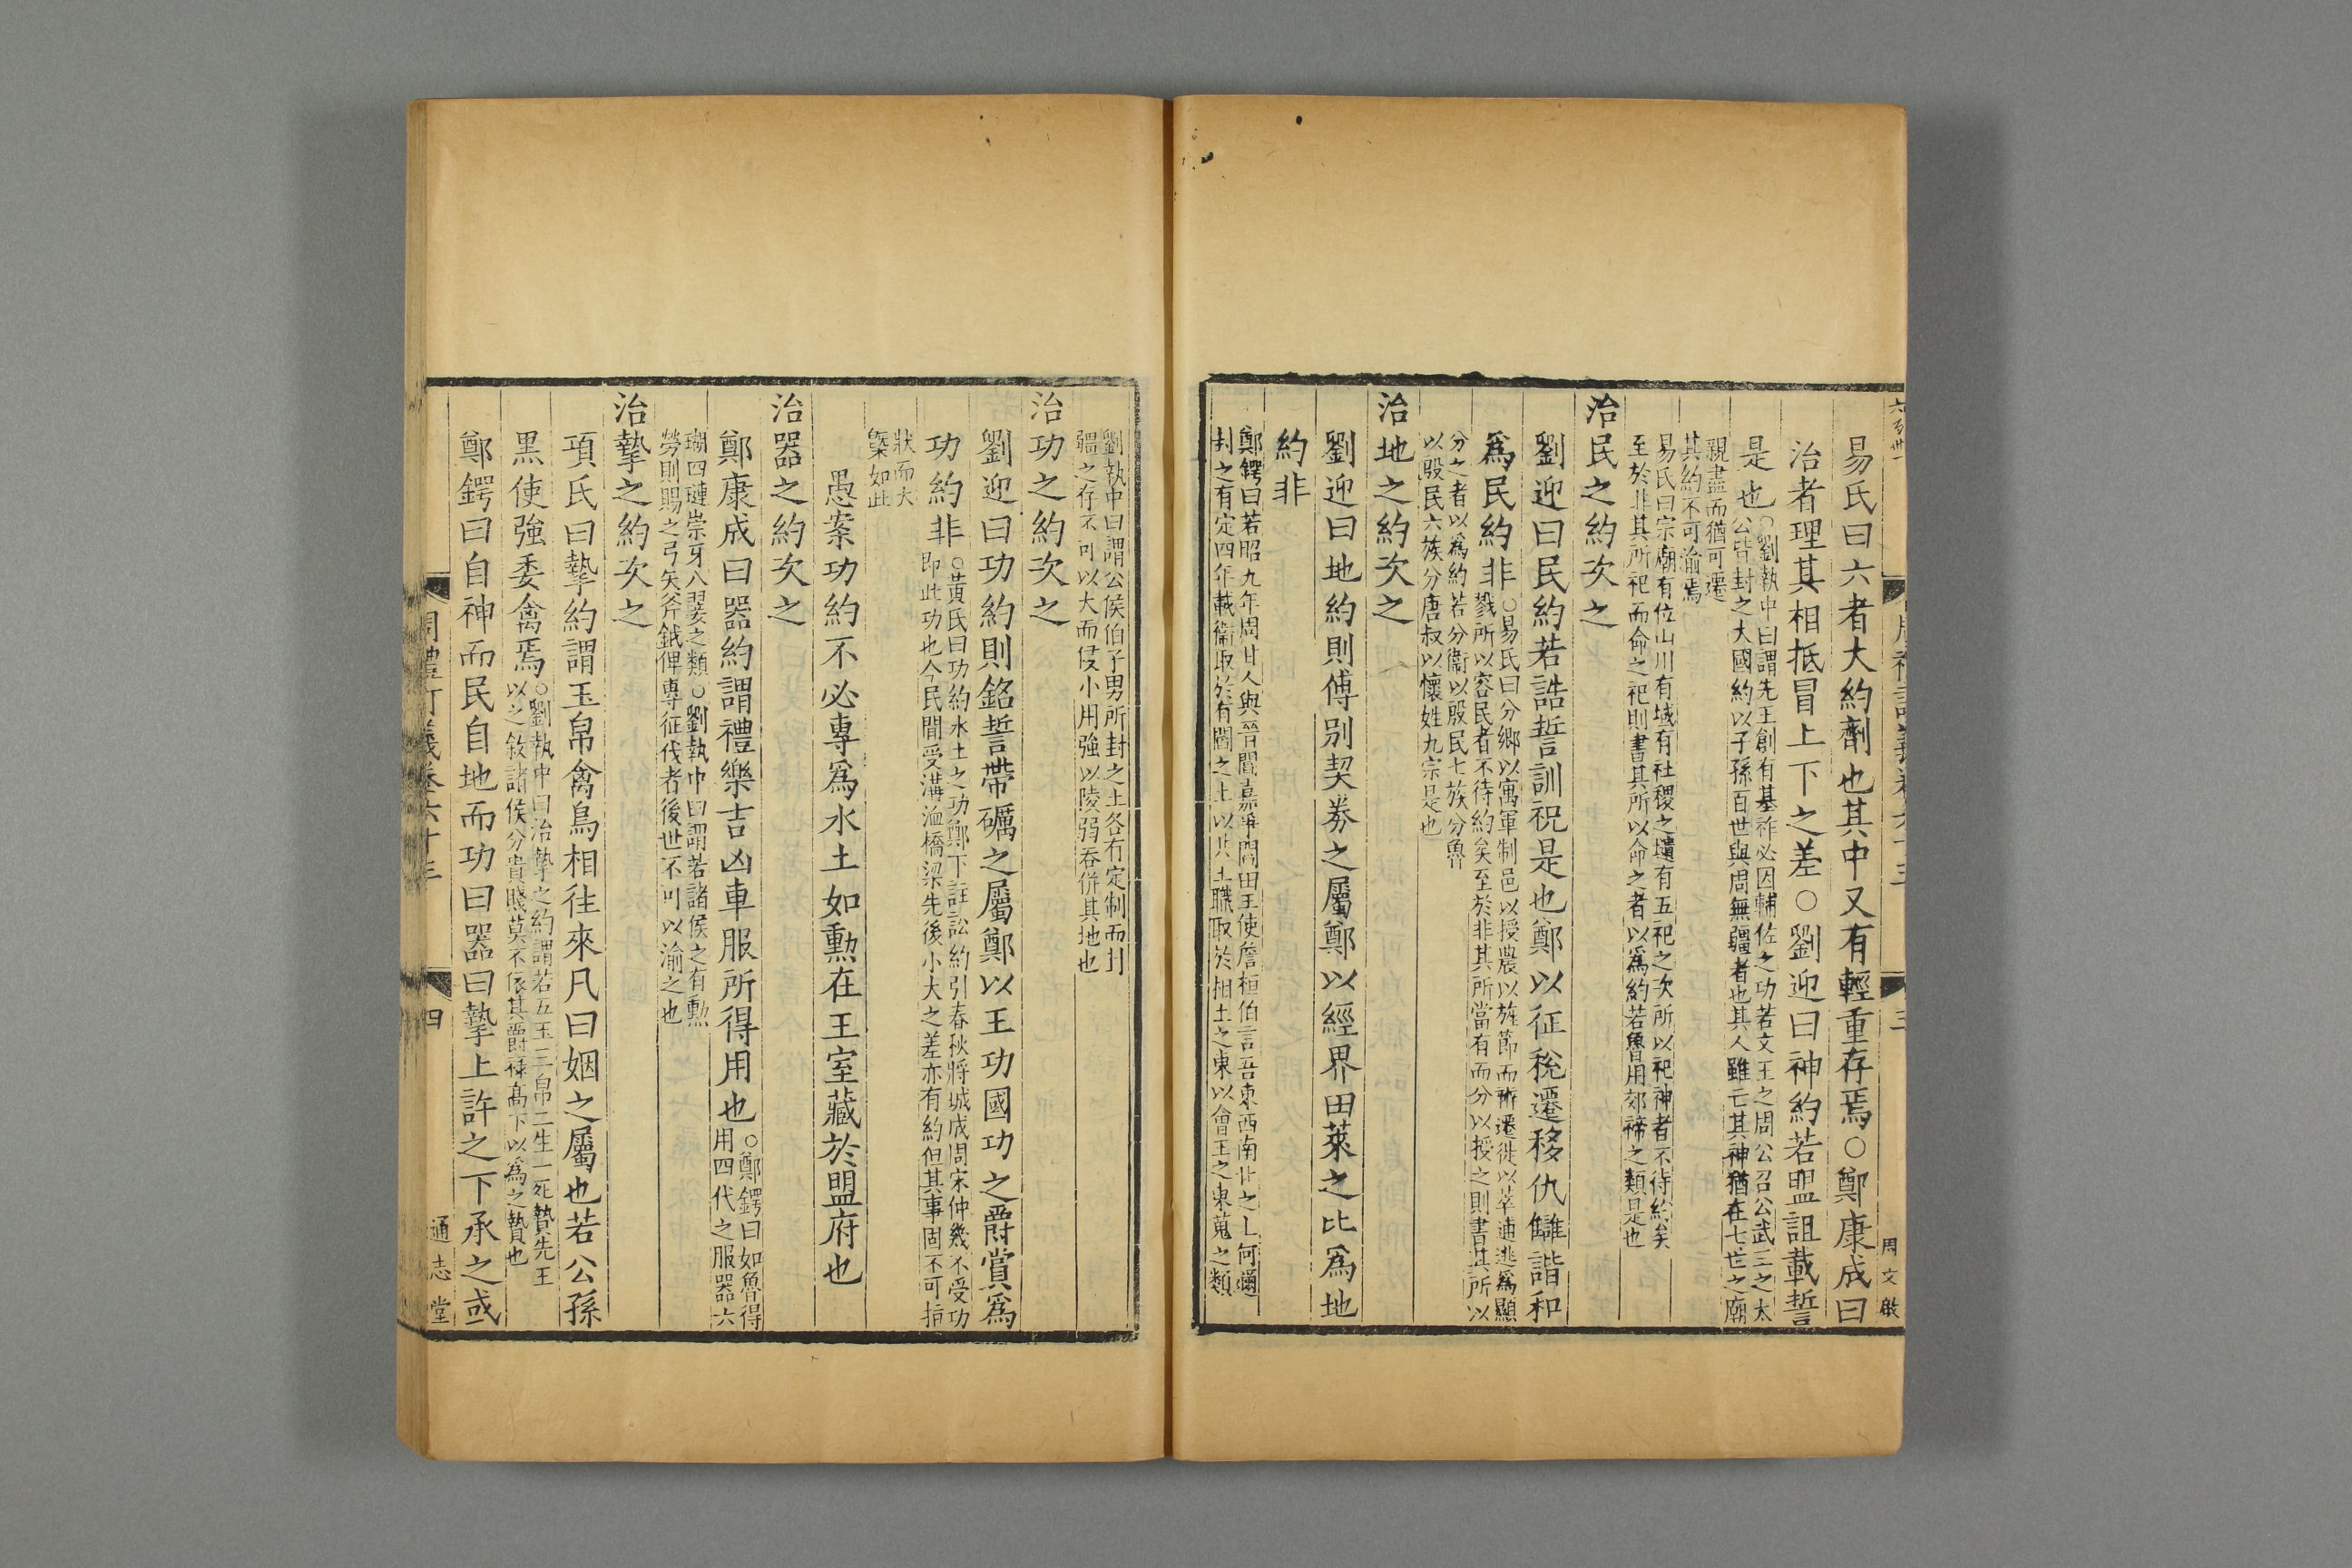 六百卅一
周文啟
易氏曰六者大約劑也其中又有輕重存焉○鄭康成曰
治者理其相抵冒上下之差○劉迎曰神約若盟詛載誓
是也○劉執中曰謂先王創有基祚必因輔佐之功若文王之周公召公武王之太
公皆封之大國約以子孫百世與周無疆者也其人雖亡其神猶在七世之廟
親盡而猶可遷
其約不可渝焉
易氏曰宗廟有位山川有域有社稷之壝有五祀之次所以祀神者不待約矣
至於非其所祀而命之祀則書其所以命之者以為約若魯用郊禘之類是也
治民之約次之
劉迎曰民約若誥誓訓祝是也鄭以征稅遷移仇讎諧和
為民約非○易氏曰分鄉以寓軍制邑以授農以旌節而辨遷徙以莘逋逃為顯
戮所以容民者不待約矣至於非其所當有而分以授之則書其所以
分之者以為約若分衞以殷民七族分魯
以殷民六族分唐叔以懷姓九宗是也
治地之約次之
劉迎曰地約則傅別契券之屬鄭以經界田萊之比為地
約非
鄭鍔曰若昭九年周甘人與晉閻嘉爭閻田王使詹桓伯言吾東西南北之土何邇
封之有定四年載衞取於有閻之土以共王職取於相土之東以會王之東蒐之類
劉執中曰謂公侯伯子男所封之土各有定制而封
疆之存不可以大而侵小用強以陵弱吞併其地也
治功之約次之
劉迎曰功約則銘誓帶礪之屬鄭以王功國功之爵賞為
功約非○黃氏曰功約水土之功鄭下註訟約引春秋將城成周宋仲幾不受功
即此功也今民間受溝洫橋梁先後小大之差亦有約但其事固不可指
狀而大
槩如此
愚案功約不必專為水土如勳在王室藏於盟府也
治器之約次之
鄭康成曰器約謂禮樂吉凶車服所得用也○鄭鍔曰如魯得
用四代之服器六
瑚四璉崇牙八翣之類○劉執中曰謂若諸侯之有勳
勞則賜之弓矢斧鉞俾專征伐者後世不可以渝之也
治摯之約次之
項氏曰摯約謂玉帛禽鳥相往來凡曰姻之屬也若公孫
黑使強委禽焉○劉執中曰治摯之約謂若五玉三帛二生一死贄先王
以之敘諸侯分貴賤莫不依其爵祿高下以為之贄也
鄭鍔曰自神而民自地而功曰器曰摯上許之下承之或
周禮訂義卷六十三
四
通志堂